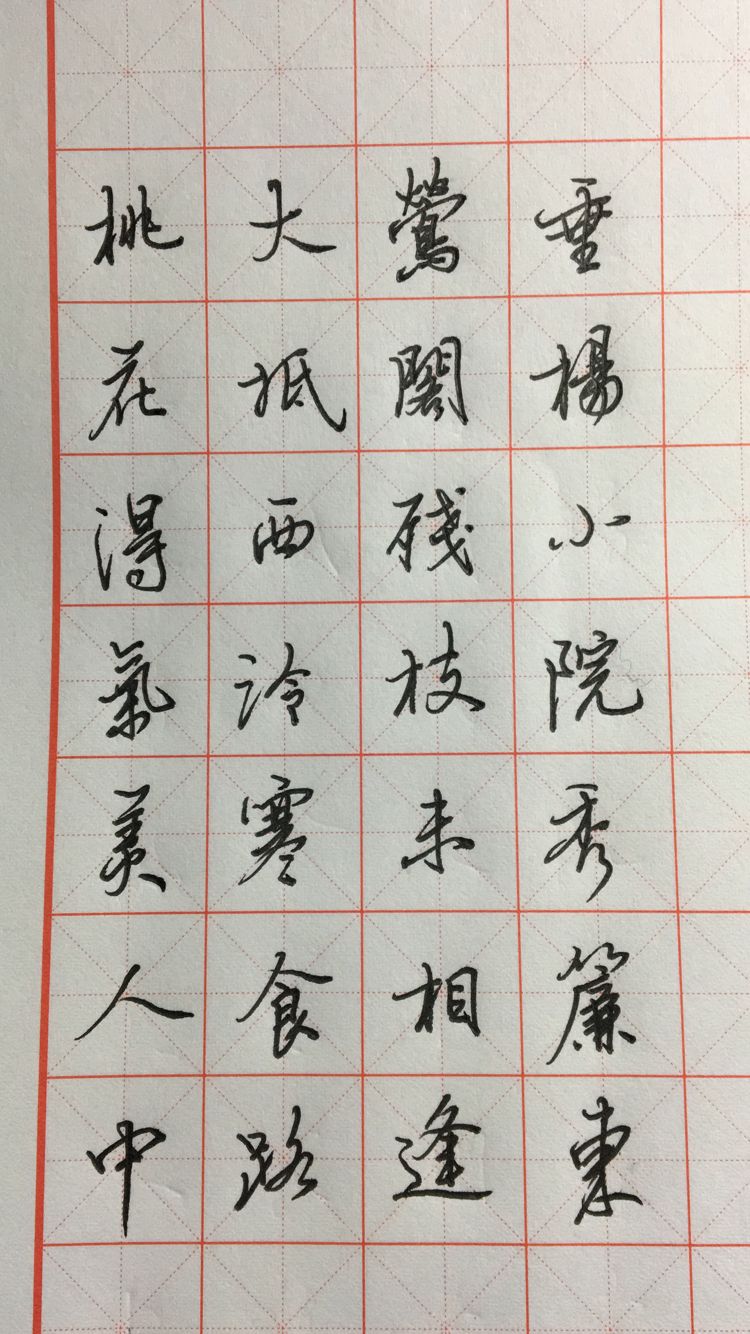 垂楊小院秀簾東
鶯閣殘枝未相逢
大抵西泠寒食路
桃花得氣美人中